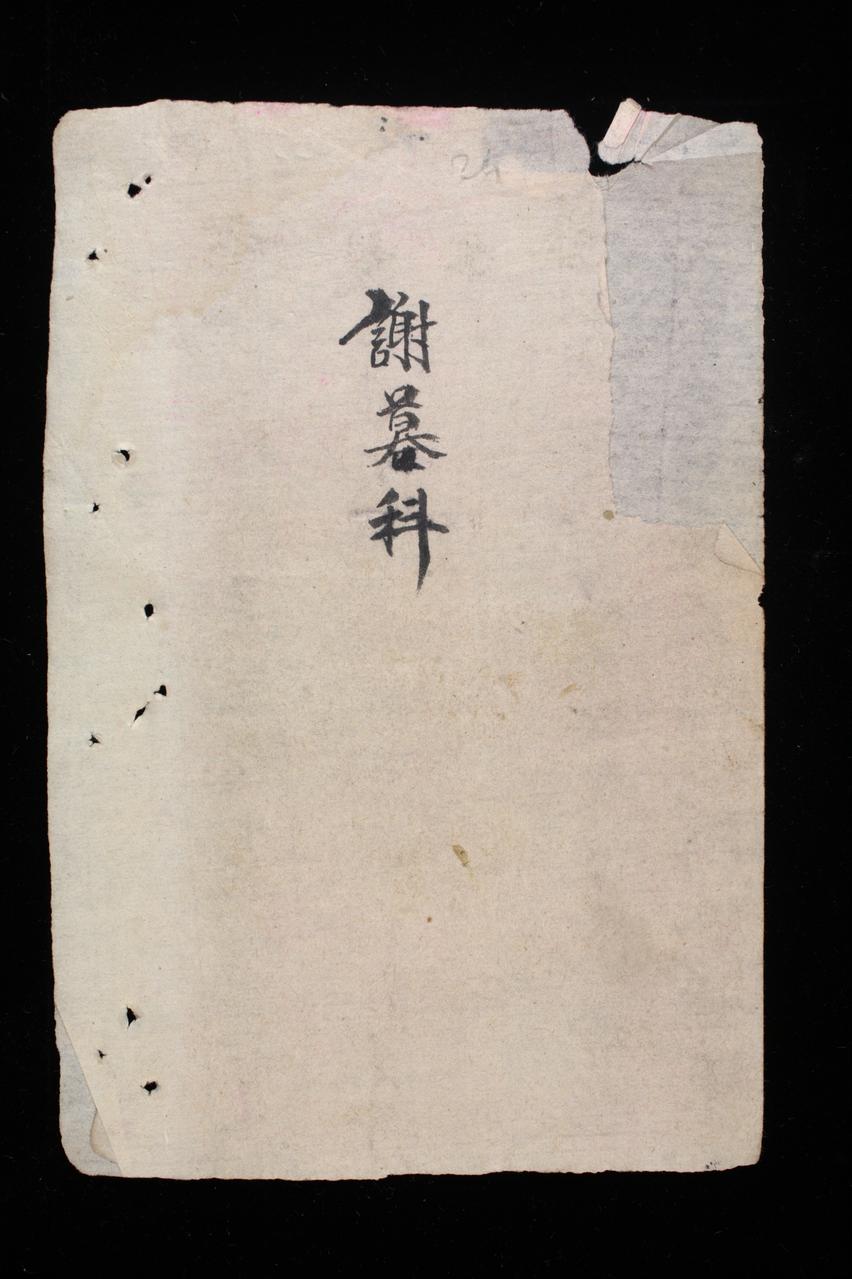 24
謝墓科